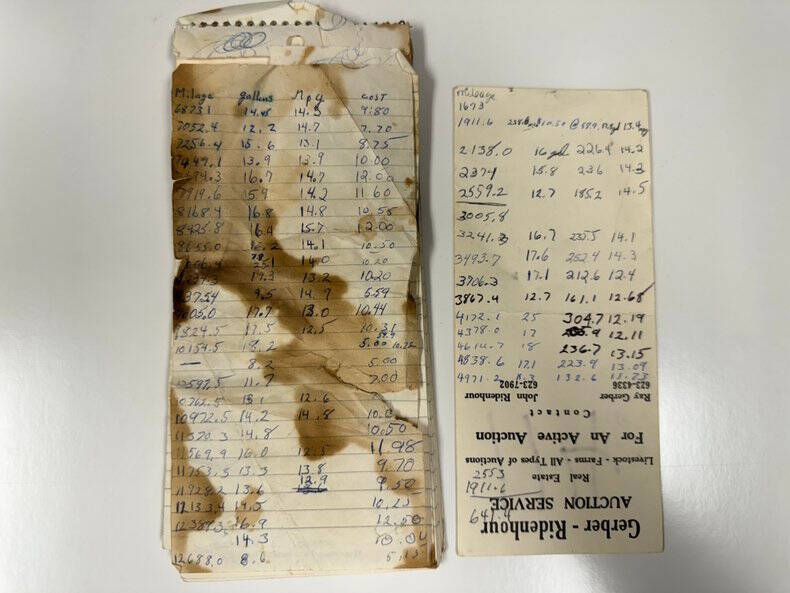 Milage gallons Mpg cost
6873.1 14.5 9.80
7052.4 12.2 14.7 7.70
7256.4 15.6 13.1 8.75
7449.1 13.9 13.9 10.00
16.7 14.7 12.00
7919.6 5.9 14.2 11.60
8168.4 16.8 14.8 10.55
8425.8 16.4 15.7 12.00
8655.0 16.2 14.1 10.50
25.1 14.0 10.20
14.3 13.2 10.20
9.5 14.9 5.59
17.7 13.0 10.44
17.5 12.5 10.31
10154.5 18.2 5.00
— 8.2 5.00
10597.5 11.7 7.00
10762.5 13.1 12.6
10972.5 14.2 14.8
11370.3 14.8 10.50
11569.9 16.0 12.5 11.98
11753.3 13.3 13.8 9.70
11928.2 13.6 12.9 9.50
12133.4 14.5
12387.3 6.9 12.50
14.3
12688.0 8.6
mileage
1673
1911.6 $10.50 13.4
2138.0 16 gal 226.4 14.2
2374 15.8 236 14.3
2559.2 12.7 185.2 14.5
3005.8
3241.3 16.7 235.5 14.1
3493.7 17.6 252.4 14.3
3706.3 17.1 212.6 12.4
3867.4 12.7 161.1 12.68
4172.1 25 304.7 12.19
4378.0 17 12.11
4614.7 18 236.7 13.15
4838.6 17.1 223.9 13.09
4971.2 132.6
623-4336 623-7902
Ray Gerber John Ridenhour
Contact
For An Active Auction
Livestock - Farms - All Types of Auctions
Real Estate
AUCTION SERVICE
Gerber - Ridenhour
2553
1911.6
641.4